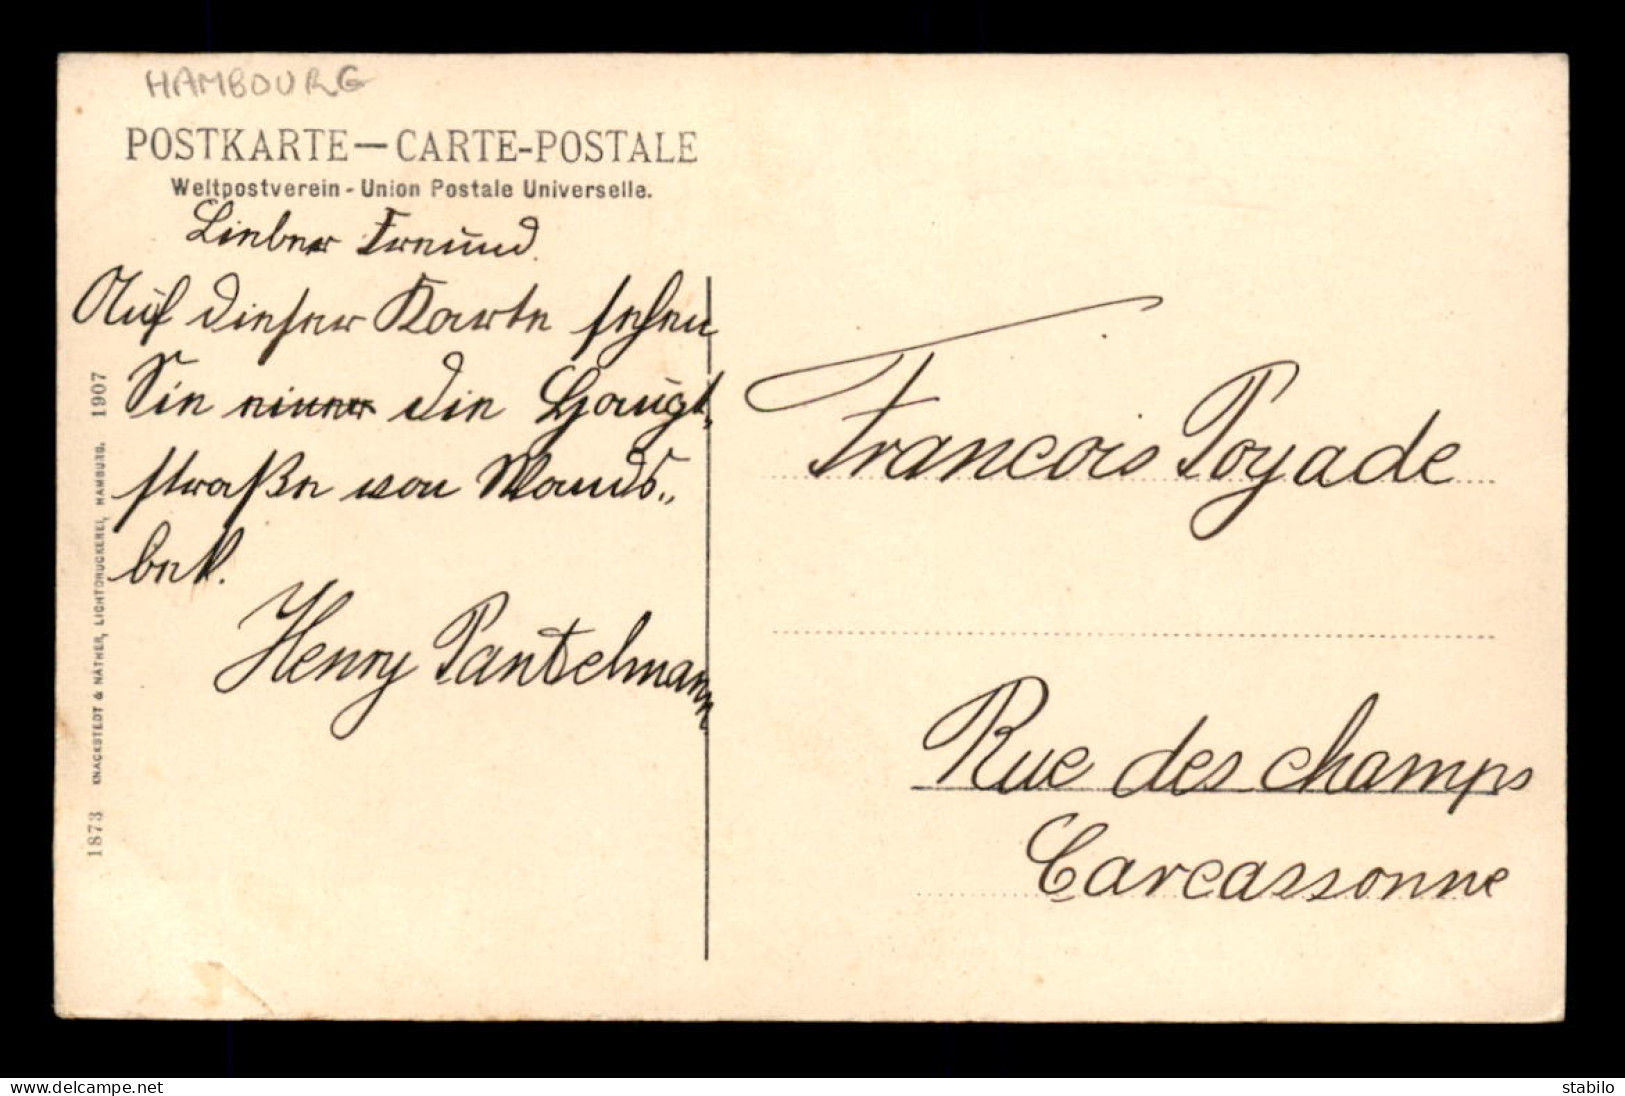 HAMBOURG
POSTKARTE — CARTE-POSTALE
Weltpostverein - Union Postale Universelle.
Lieber Freund.
Auf dieser Karte sehen
Sie einer die Haupt-
straße von Wands-
bek.
Henry Pantelmann
Francois Poyade
Rue des champs
Carcassonne
1873 KNACKSTEDT & NÄTHER, LICHTDRUCKEREI, HAMBURG. 1907
www.delcampe.net
stabilo